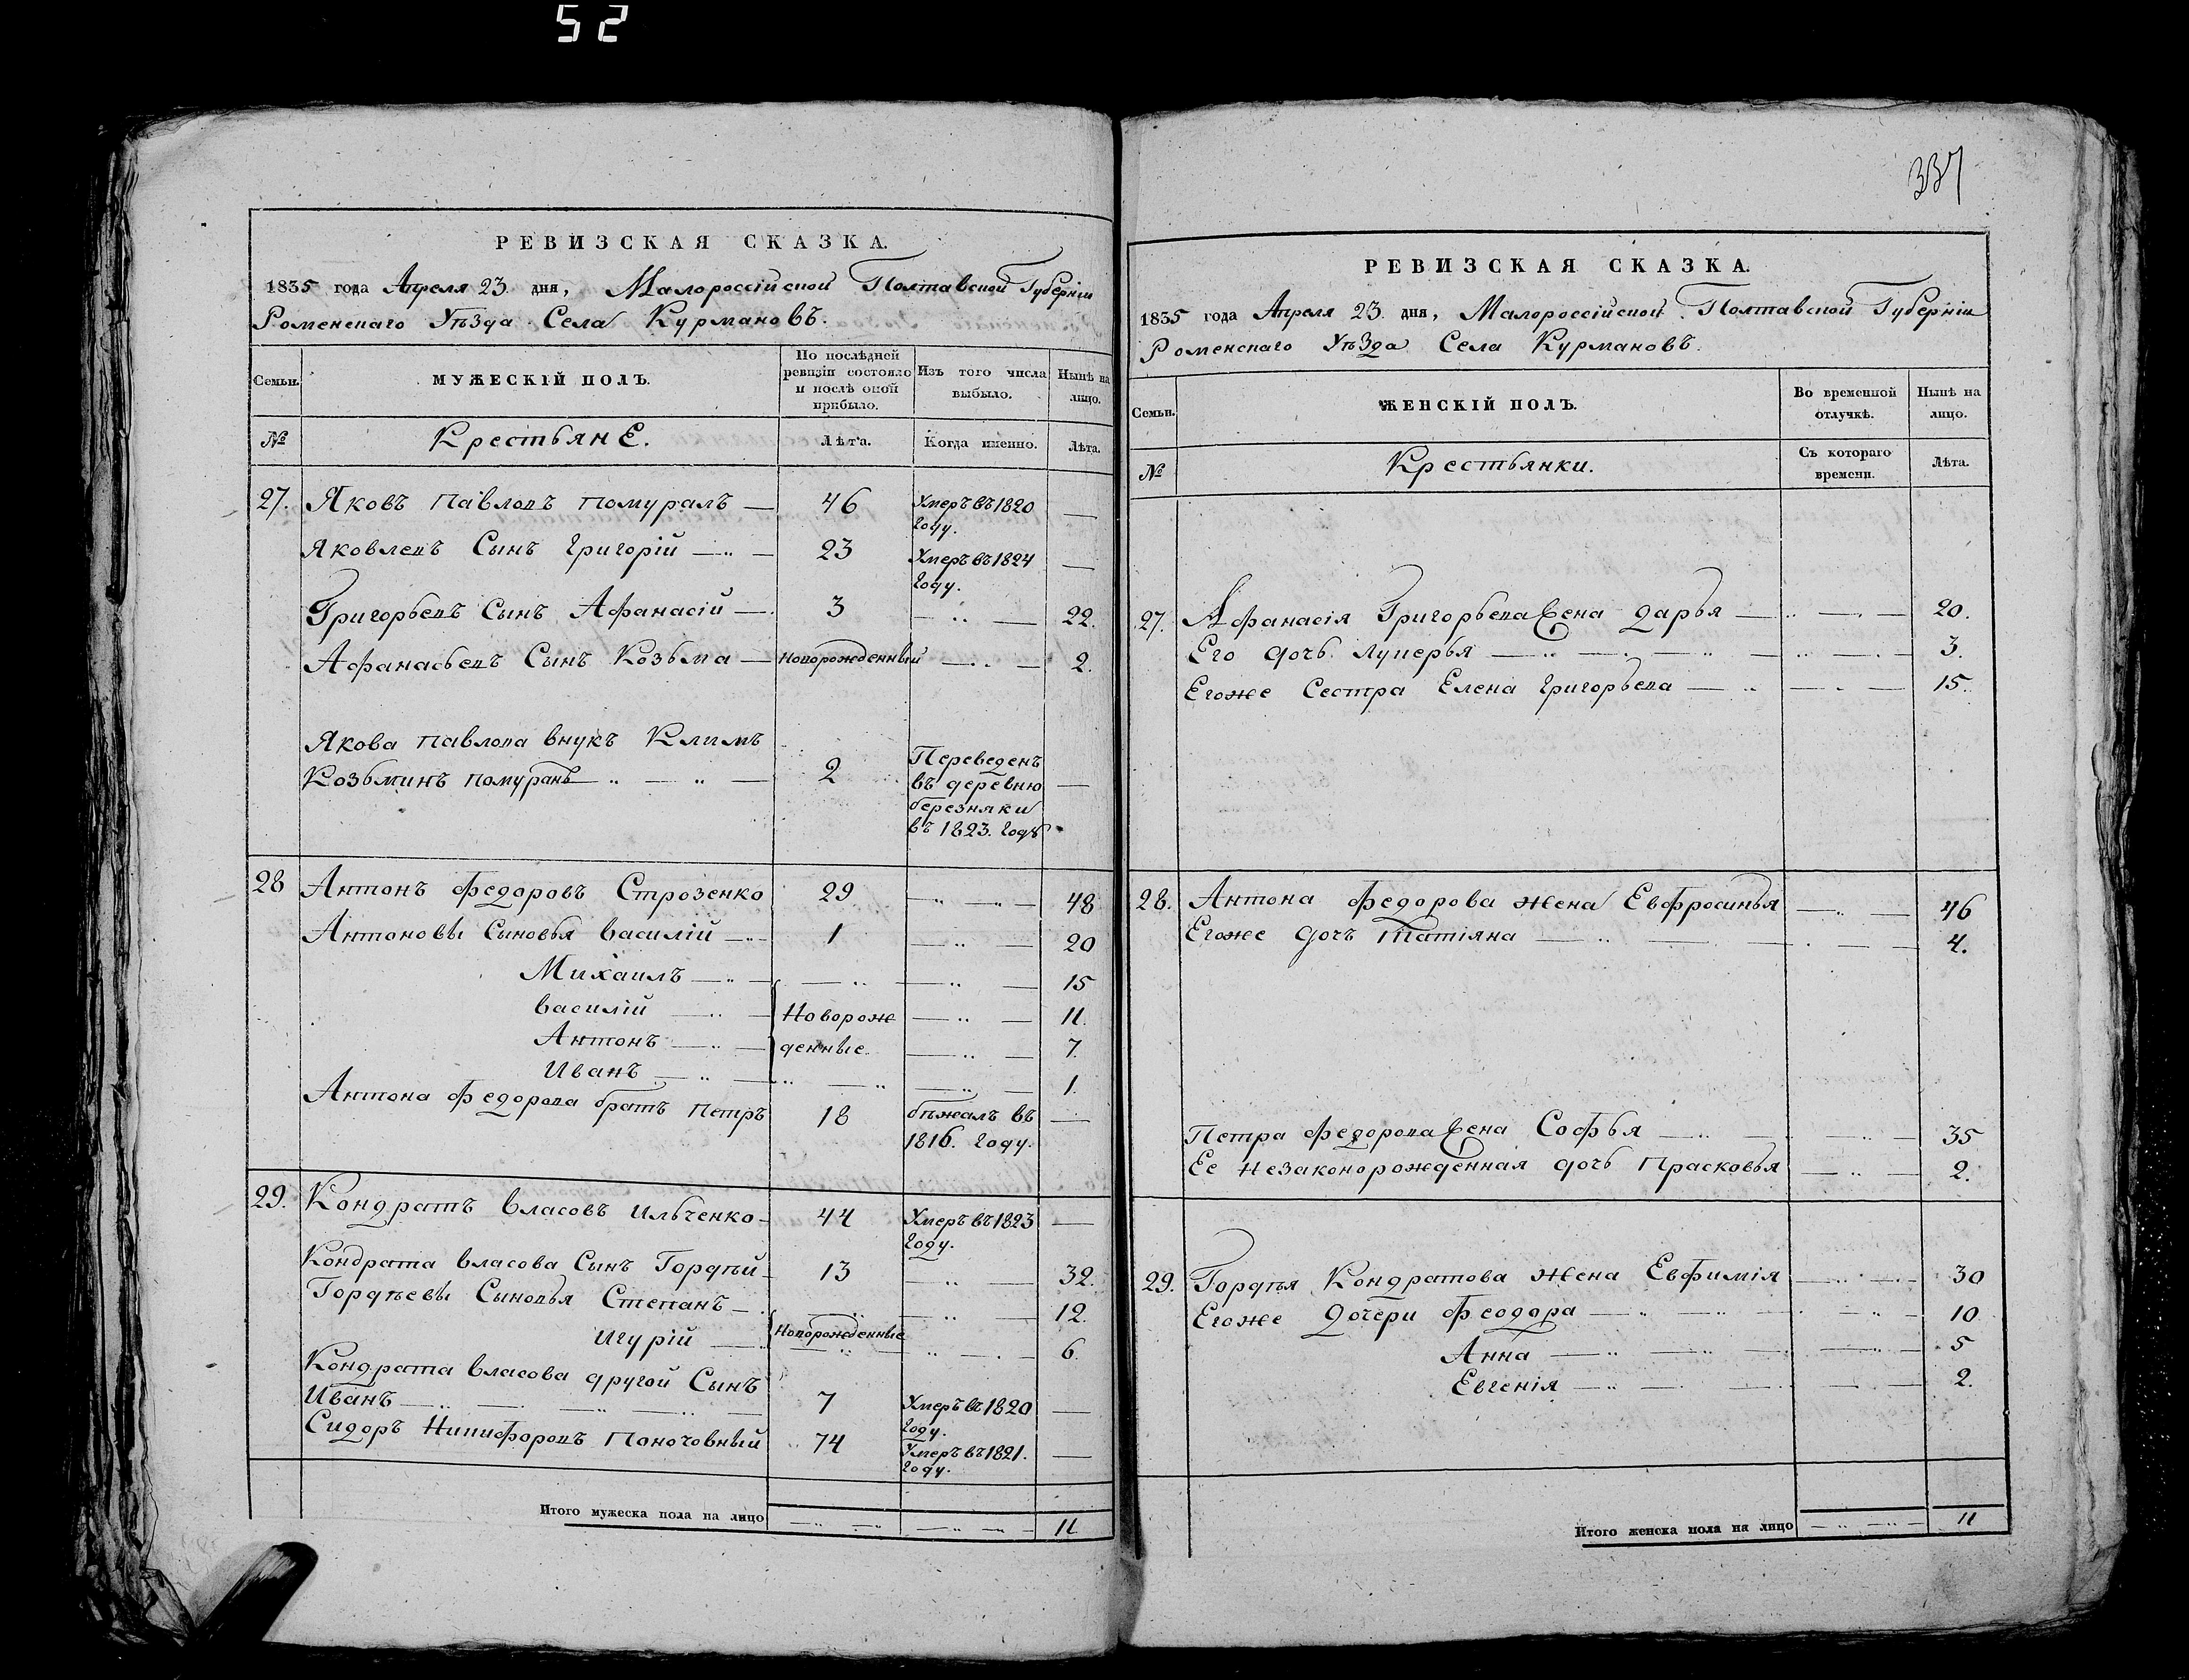 52
337
РЕВИЗСКАЯ СКАЗКА.
1835 года Апреля 23 дня, Малороссійской Полтавской Губерніи
Роменскаго Уѣзда Села Курмановъ.
Семьи.
МУЖЕСКІЙ ПОЛЪ.
По послѣдней ревизіи состояло и послѣ оной прибыло.
Изъ того числа выбыло.
Нынѣ на лицо.
№
Крестьяне.
Лѣта.
Когда именно.
Лѣта.
27. Яковъ Павловъ — 46 Умеръ въ 1820 году. —
Яковлевъ Сынъ Григорій — 23 Умеръ въ 1824 году. —
Григорьевъ Сынъ Афанасій — 3 — 22.
Афанасьевъ Сынъ Козьма — Новорожденный — 2.
Якова Павлова внукъ Климъ
Козьминъ — 2 Переведенъ въ деревню березняки въ 1823. годѣ —
28 Антонъ Федоровъ Строзенко 29 — 48
Антоновы Сыновья Василій — 1 — 20
Михаилъ — 15
Василій — Новорож — 11.
Антонъ — денные. — 7.
Иванъ — 1.
Антона Федорова братъ Петръ 18 бѣжалъ въ 1816. году. —
29. Кондратъ Власовъ Ильченко — 44 Умеръ въ 1823 году. —
Кондрата Власова Сынъ Гордѣй — 13 — 32.
Гордѣевы Сыновья Степанъ — 12.
Игурій — Новорожденные — 6.
Кондрата Власова другой Сынъ
Иванъ — 7 Умеръ въ 1820 году. —
Сидоръ Никифоровъ Поночовный 74 Умеръ въ 1821. году. —
Итого мужеска пола на лицо — 11
РЕВИЗСКАЯ СКАЗКА.
1835 года Апреля 23 дня, Малороссійской Полтавской Губерніи
Роменскаго Уѣзда Села Курмановъ.
Семьи.
ЖЕНСКІЙ ПОЛЪ.
Во временной отлучкѣ.
Нынѣ на лицо.
№
Крестьянки.
Съ котораго времени.
Лѣта.
27. Афанасія Григорьева жена Дарья — 20.
Его дочь Лукерья — 3.
Егоже Сестра Елена Григорьева — 15.
28. Антона Федорова жена Евфросинья — 46
Егоже дочь Татіяна — 4.
Петра Федорова жена Софья — 35
Ее незаконорожденная дочь Прасковья — 2.
29. Гордѣя Кондратова жена Евфимія — 30
Егоже дочери Феодора — 10
Анна — 5
Евгенія — 2.
Итого женска пола на лицо — 11